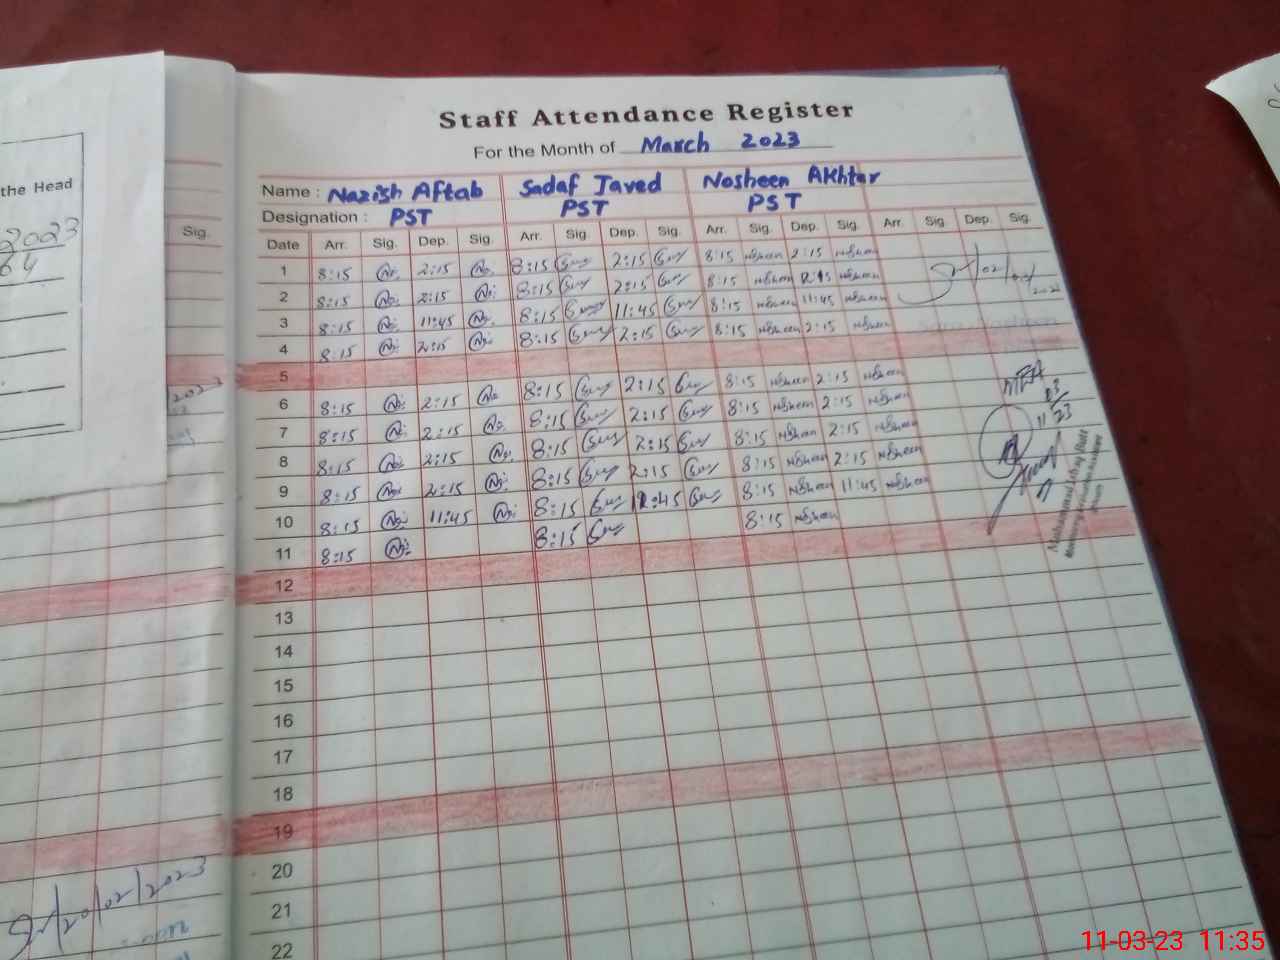 Staff Attendance Register
For the Month of March 2023
the Head
2023
64
Name : Nazish Aftab Sadaf Javed Nosheen Akhtar
Designation : PST PST PST
Sig.
Date Arr. Sig. Dep. Sig. Arr. Sig. Dep. Sig. Arr. Sig. Dep. Sig. Arr. Sig. Dep. Sig.
1 8:15 2:15 8:15 2:15 8:15 nosheen 2:15 nosheen
2 8:15 2:15 8:15 2:15 8:15 nosheen 2:15 nosheen
3 8:15 11:45 8:15 11:45 8:15 nosheen 11:45 nosheen
4 8:15 2:15 8:15 2:15 8:15 nosheen 2:15 nosheen
5
6 8:15 2:15 8:15 2:15 8:15 nosheen 2:15 nosheen
7 8:15 2:15 8:15 2:15 8:15 nosheen 2:15 nosheen
8 8:15 2:15 8:15 2:15 8:15 nosheen 2:15 nosheen
9 8:15 2:15 8:15 2:15 8:15 nosheen 2:15 nosheen
10 8:15 11:45 8:15 11:45 8:15 nosheen 11:45 nosheen
11 8:15 8:15 8:15 nosheen
12
13
14
15
16
17
18
19
20
21
22
20/02/2023
11-03-23 11:35